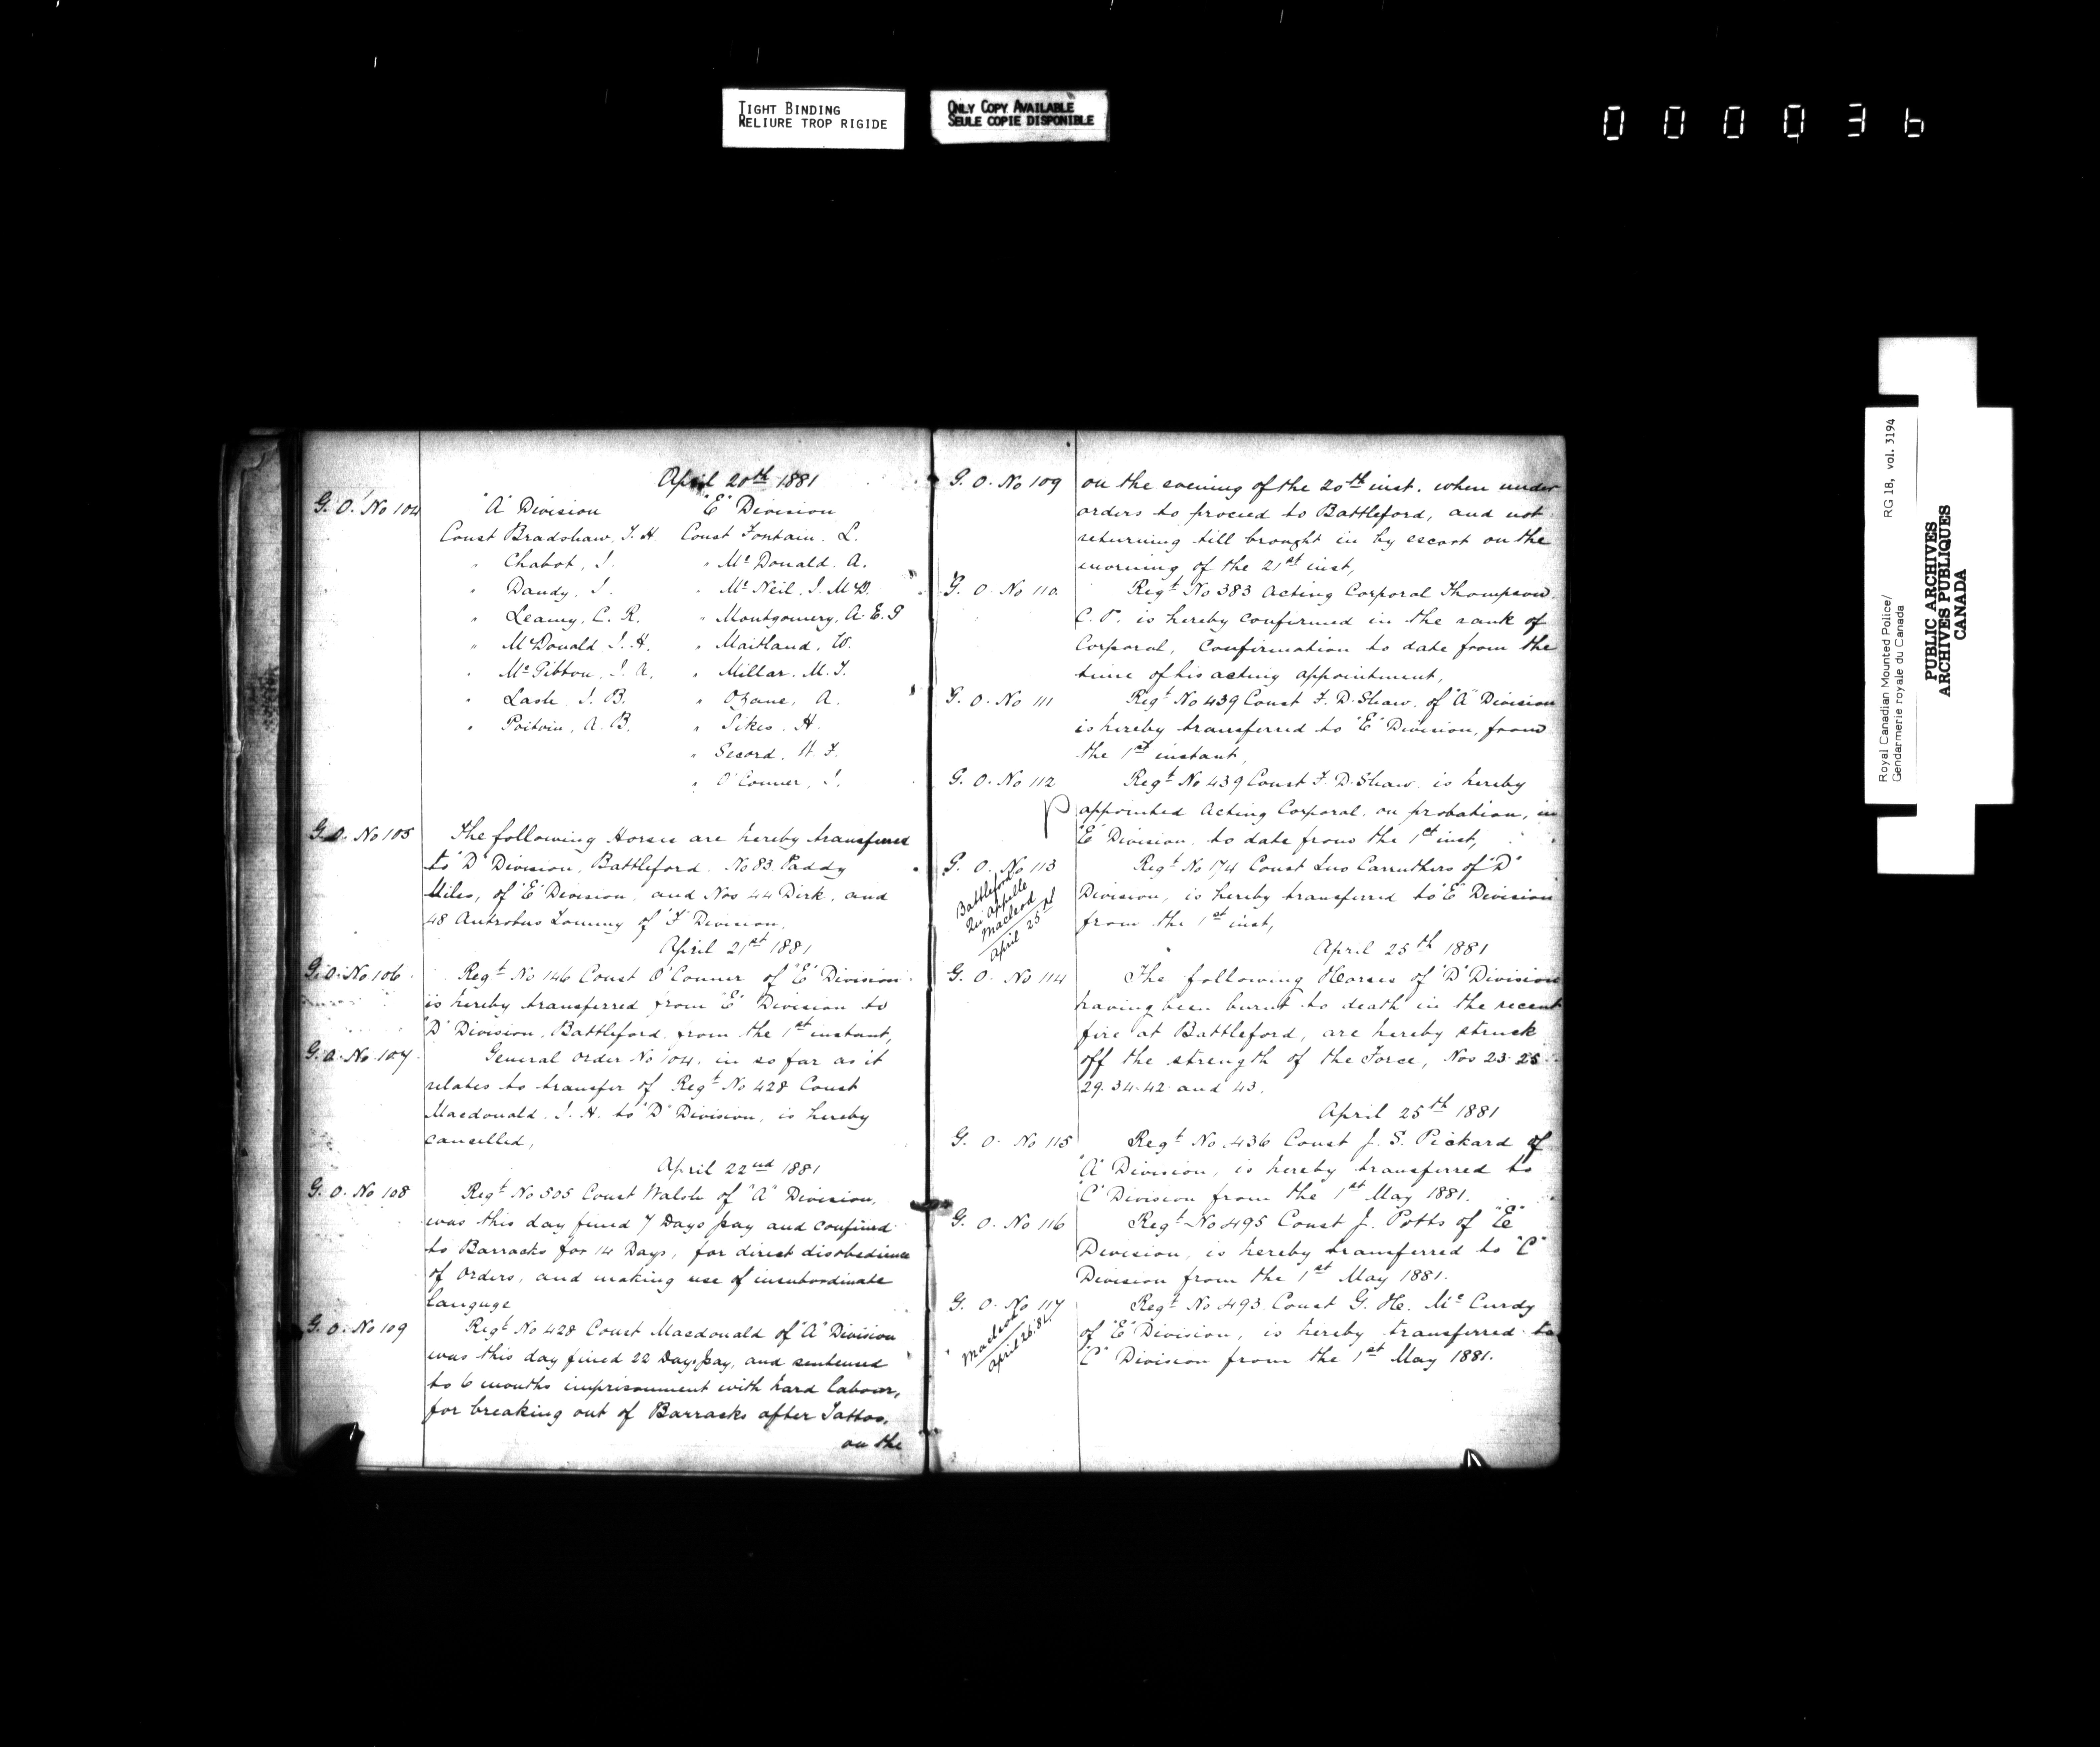 TIGHT BINDING
RELIURE TROP RIGIDE
ONLY COPY AVAILABLE
SEULE COPIE DISPONIBLE
000036
April 20th 1881
G. O. No 104
"A" Division "E" Division
Const Bradshaw, J. H. Const Fontain. L.
" Chabot, J. " Mc Donald. A.
" Dandy, J. " Mc Neil. J. McD.
" Leamy, C. R. " Montgomery, A. E. G
" McDonald. J. H. " Maitland, W.
" Mc Gibbon. J. A. " Millar. M. J.
" Lash. J. B. " Ozame, A.
" Poitvin, A. B. " Sikes. H.
" Secord, H. F.
" O'Conner, J.
G. O. No 105 The following Horses are hereby transferred
to "D" Division, Battleford. No 83. Paddy
Miles, of "E" Division, and Nos 44 Dirk, and
48 Antrobus Tommy of "F" Division.
April 21st 1881
G. O. No 106 Regt No 146 Const O'Conner of "E" Division
is hereby transferred from "E" Division to
"D" Division, Battleford. from the 1st instant,
G. O. No 107 General Order No 104. in so far as it
relates to transfer of Regt No 428 Const
Macdonald. J. H. to "D" Division, is hereby
cancelled,
April 22nd 1881
G. O. No 108 Regt No 505 Const Walsh of "A" Division,
was this day fined 7 Days pay and confined
to Barracks for 14 Days, for direct disobedience
of Orders, and making use of insubordinate
languge
G. O. No 109 Regt No 428 Const Macdonald of "A" Division
was this day fined 22 Days pay, and sentenced
to 6 months imprisonment with hard labour,
for breaking out of Barracks after Tattoo,
on the
G. O. No 109 on the evening of the 20th inst. when under
orders to proceed to Battleford, and not
returning till brought in by escort on the
morning of the 21st inst,
G. O. No 110. Regt No 383 Acting Corporal Thompson.
C. P. is hereby confirmed in the rank of
Corporal, Confirmation to date from the
time of his acting appointment,
G. O. No 111 Regt No 439 Const F. D. Shaw. of "A" Division
is hereby transferred to "E" Division, from
the 1st instant,
G. O. No 112 Regt No 439 Const F. D. Shaw. is hereby
P appointed Acting Corporal, on probation, in
"E" Division. to date from the 1st inst,
G. O. No 113 Regt No 174 Const Jno Carruthers of "D"
Division, is hereby transferred to "E" Division
from the 1st inst,
Battleford
Qu appelle
Macleod
April 25th
April 25th 1881
G. O. No 114 The following Horses of "D" Division
having been burnt to death in the recent
fire at Battleford, are hereby struck
off the strength of the Force, Nos 23. 25
29. 34. 42 and 43.
April 25th 1881
G. O. No 115 Regt No 436 Const J. S. Pickard of
"A" Division, is hereby transferred to
"C" Division from the 1st May 1881.
G. O. No 116 Regt No 495 Const J. Potts of "E"
Division, is hereby transferred to "C"
Division from the 1st May 1881.
G. O. No 117 Regt No 493. Const G. H. Mc Curdy
of "E" Division, is hereby transferred to
"C" Division from the 1st May 1881.
Macleod
April 26. 81.
Royal Canadian Mounted Police/ RG 18, vol. 3194
Gendarmerie royale du Canada
PUBLIC ARCHIVES
ARCHIVES PUBLIQUES
CANADA